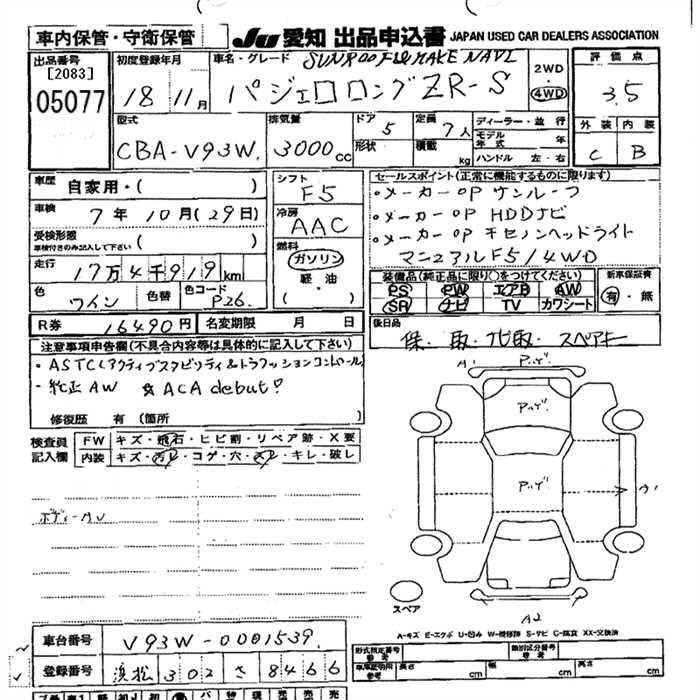 車内保管・守衛保管
JU 愛知 出品申込書 JAPAN USED CAR DEALERS ASSOCIATION
出品番号
[2083]
05077
初度登録年月
18年11月
車名・グレード SUNROOF
パジェロロングZR-S
2WD
4WD
評価点
3.5
型式
CBA-V93W.
排気量
3000cc
ドア
形状
5
定員
7人
積載
kg
ディーラー・並行
モデル
年式
年
ハンドル 左・右
外装 内装
C B
車歴
自家用・( )
シフト
F5
セールスポイント(正常に機能するものに限ります)
・メーカーOP サンルーフ
・メーカーOP HDDナビ
・メーカーOP キセノンヘッドライト
マニュアルF5/4WD
車検
7年10月(29日)
冷房
AAC
受検形態
車検付きのみ記入して下さい
( )
燃料
ガソリン
軽・油
( )
走行
17万4千919km
色
ワイン
色替
色コード
P26.
装備品(純正品に限り○をつけてください)
PS PW エアB AW
SR ナビ TV カワシート
新車保証書
有・無
R券 16490円 名変期限 月 日
後日品
保・取・ナビ取・スペアキー
注意事項申告欄(不具合内容等は具体的に記入して下さい)
・ASTC(アクティブスタビリティ&トラクションコントロール)
・純正AW ☆ACA debut♡
修復歴 有(箇所
検査員
記入欄
FW キズ・飛石・ヒビ割・リペア跡・X要
内装 キズ・汚レ・コゲ・穴・スレ・キレ・破レ
A1
アハゲ
アハゲ
アハゲ
A1
ボディーAU
スペア
A2
A-キズ E-エクボ U-凹み W-補修跡 S-サビ C-腐食 XX-交換済
車台番号 V93W-0001539.
登録番号 浜松302さ8466
形式指定番号
類別区分番号
備考
長さ cm 幅 cm 高さ cm